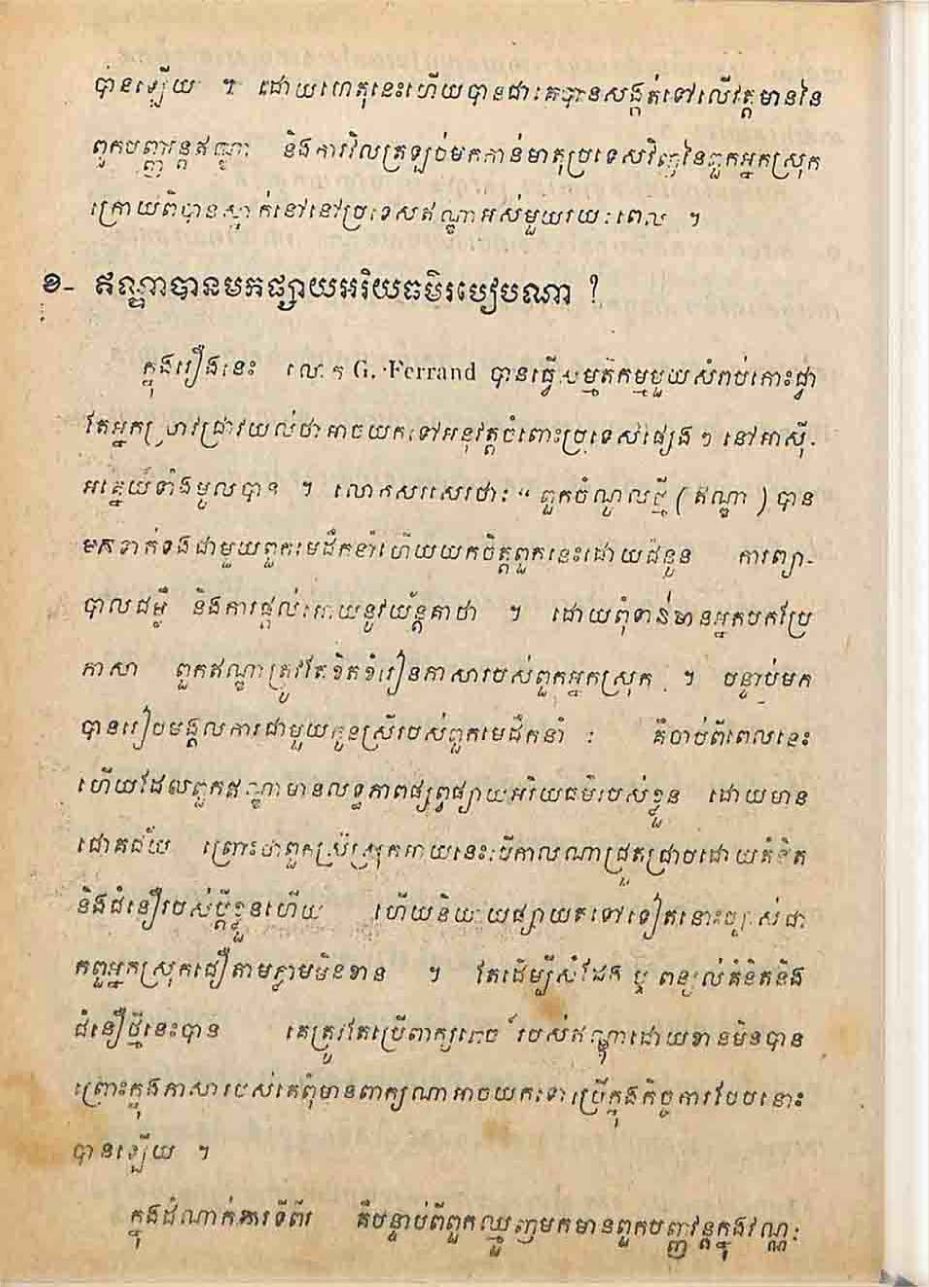 បានឡើយ ។ ដោយហេតុនេះហើយបានជាគេបានសង្កត់ទៅលើវត្តមាននៃ
ពួកបញ្ញាវន្តឥណ្ឌា និងការវិលត្រឡប់មកកាន់មាតុប្រទេសវិញនៃពួកអ្នកស្រុក
ក្រោយពីបានស្នាក់នៅនៅប្រទេសឥណ្ឌាអស់មួយរយៈពេល ។
ខ- ឥណ្ឌាបានមកផ្សាយអរិយធម៌របៀបណា ?
ក្នុងរឿងនេះ លោក G. Ferrand បានធ្វើសម្មតិកម្មមួយសំរាប់កោះជ្វា
តែអ្នកស្រាវជ្រាវយល់ថាអាចយកទៅអនុវត្តចំពោះប្រទេសផ្សេង ៗ នៅអាស៊ី
អគ្នេយ៍ទាំងមូលបាន ។ លោកសរសេរថាៈ " ពួកចំណូលថ្មី ( ឥណ្ឌា ) បាន
មកទាក់ទងជាមួយពួកមេដឹកនាំហើយយកចិត្តពួកនេះដោយជំនូន ការព្យា-
បាលជម្ងឺ និងការផ្តល់អោយនូវយ័ន្តគាថា ។ ដោយពុំទាន់មានអ្នកបកប្រែ
ភាសា ពួកឥណ្ឌាត្រូវតែខិតខំរៀនភាសារបស់ពួកអ្នកស្រុក ។ បន្ទាប់មក
បានរៀបមង្គលការជាមួយកូនស្រីរបស់ពួកមេដឹកនាំ : គឺចាប់ពីពេលនេះ
ហើយដែលពួកឥណ្ឌាមានលទ្ធភាពផ្សព្វផ្សាយអរិយធម៌របស់ខ្លួន ដោយមាន
ជោគជ័យ ព្រោះថាពួកស្រីស្រុកអាយនេះបើកាលណាជ្រួតជ្រាបដោយគំនិត
និងជំនឿរបស់ប្តីខ្លួនហើយ ហើយនិយាយផ្សាយតទៅទៀតនោះច្បាស់ជា
កពួអ្នកស្រុកជឿតាមភ្លាមមិនខាន ។ តែដើម្បីសំដែង ឬ ពន្យល់គំនិតនិង
ជំនឿថ្មីនេះបាន គេត្រូវតែប្រើពាក្យពេចន៍របស់ឥណ្ឌាដោយខានមិនបាន
ព្រោះក្នុងភាសារបស់គេពុំមានពាក្យណាអាចយកទៅប្រើក្នុងកិច្ចការបែបនោះ
បានឡើយ ។
ក្នុងដំណាក់ការទីពីរ គឺបន្ទាប់ពីពួកឈ្មួញមកមានពួកបញ្ញវន្តក្នុងវណ្ណៈ